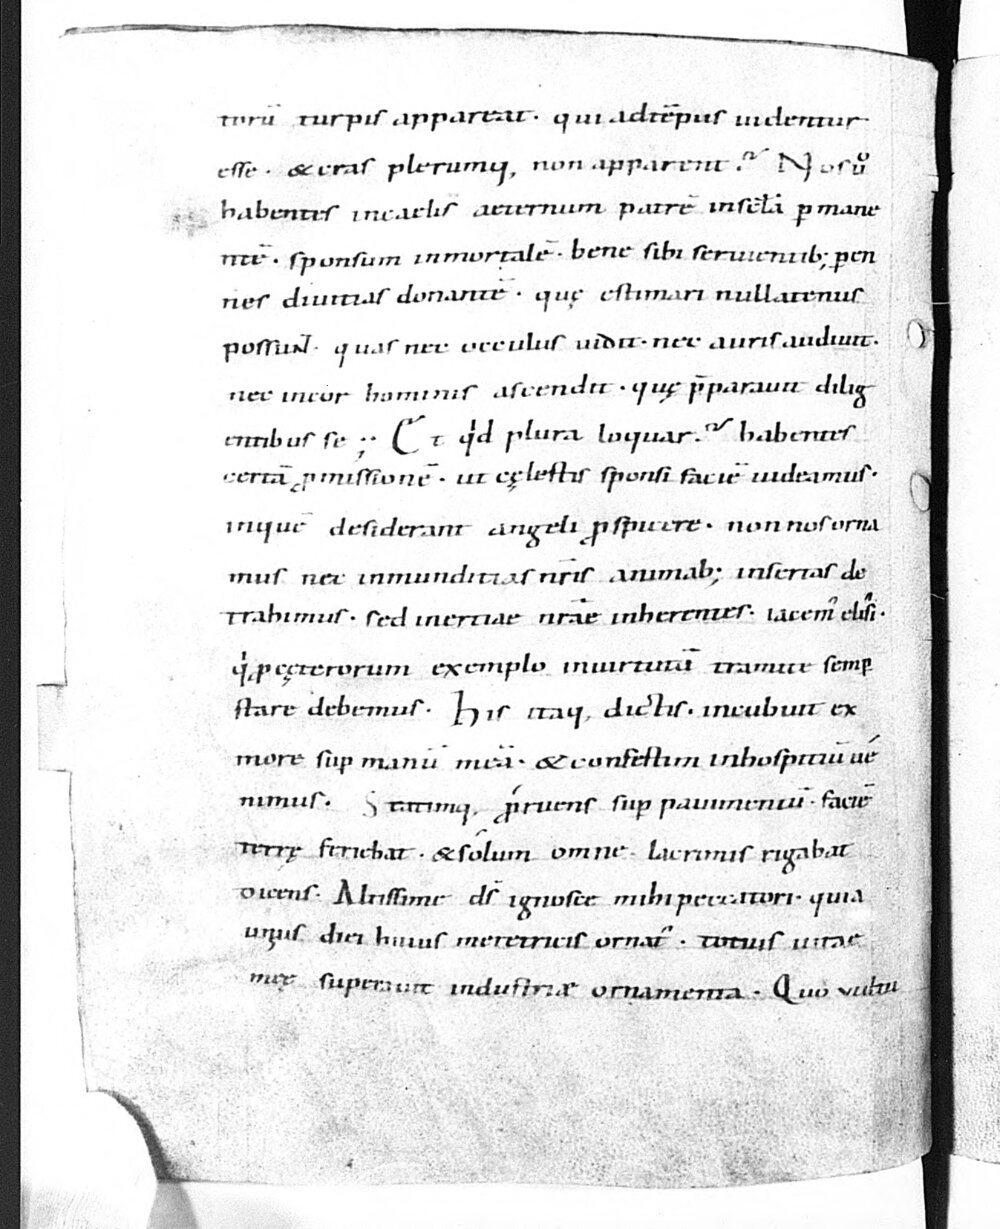 torū turpis appareat· qui adtēpus uidentur
esse· & cras plerumq; non apparent? Nos ů
habentes incaelis̄ aeternum patrē inscl̄a pmane
ntē· sponsum inmortalē· bene sibi seruientib; pen
nes diuitias donantē· quę estimari nullatenus
possunt· quas nec occulus uidit· nec auris audiuit·
nec incor hominis ascendit· quę p̄parauit dilig
entibus se;; Et qd plura loquar? habentes
certā ꝓmissionē· ut cęlestis sponsi faciē uideamus·
inquē desiderant angeli ꝓspicere· non nos orna
mus nec inmunditias nr̄is animab; insertas de
trahimus· sed inertiae nrāe inherentes· iacem᾽ elisi·
q̇ pcęterorum exemplo inuirtutū tramite semp
stare debemus· His itaq; dictis· incubuit ex
more sup manū meā· & confestim inhospitiū ué
nimus· Statimq; ꝓruens sup pauimentū· faciē
terrę feriebat· & sólum omne lacrimis rigabat
dicens· Altissime ds̄ ignosce mihi peccatori· quia
unius diei huius meretricis ornat᾽· totius uitae
meę superauit industriæ ornamenta· Quo vultu